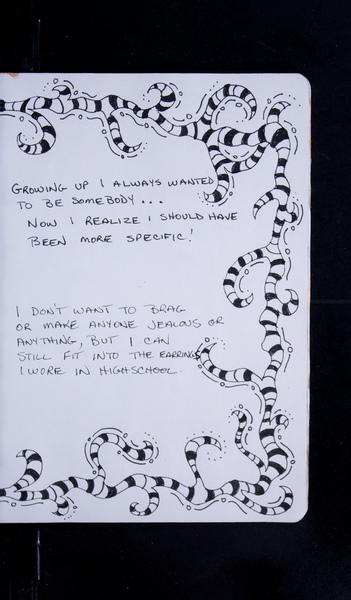 GROWING UP I ALWAYS WANTED
TO BE SOMEBODY...
NOW I REALIZE I SHOULD HAVE
BEEN MORE SPECIFIC!
I DON'T WANT TO BRAG
OR MAKE ANYONE JEALOUS OR
ANYTHING, BUT I CAN
STILL FIT INTO THE EARRINGS
I WORE IN HIGHSCHOOL.